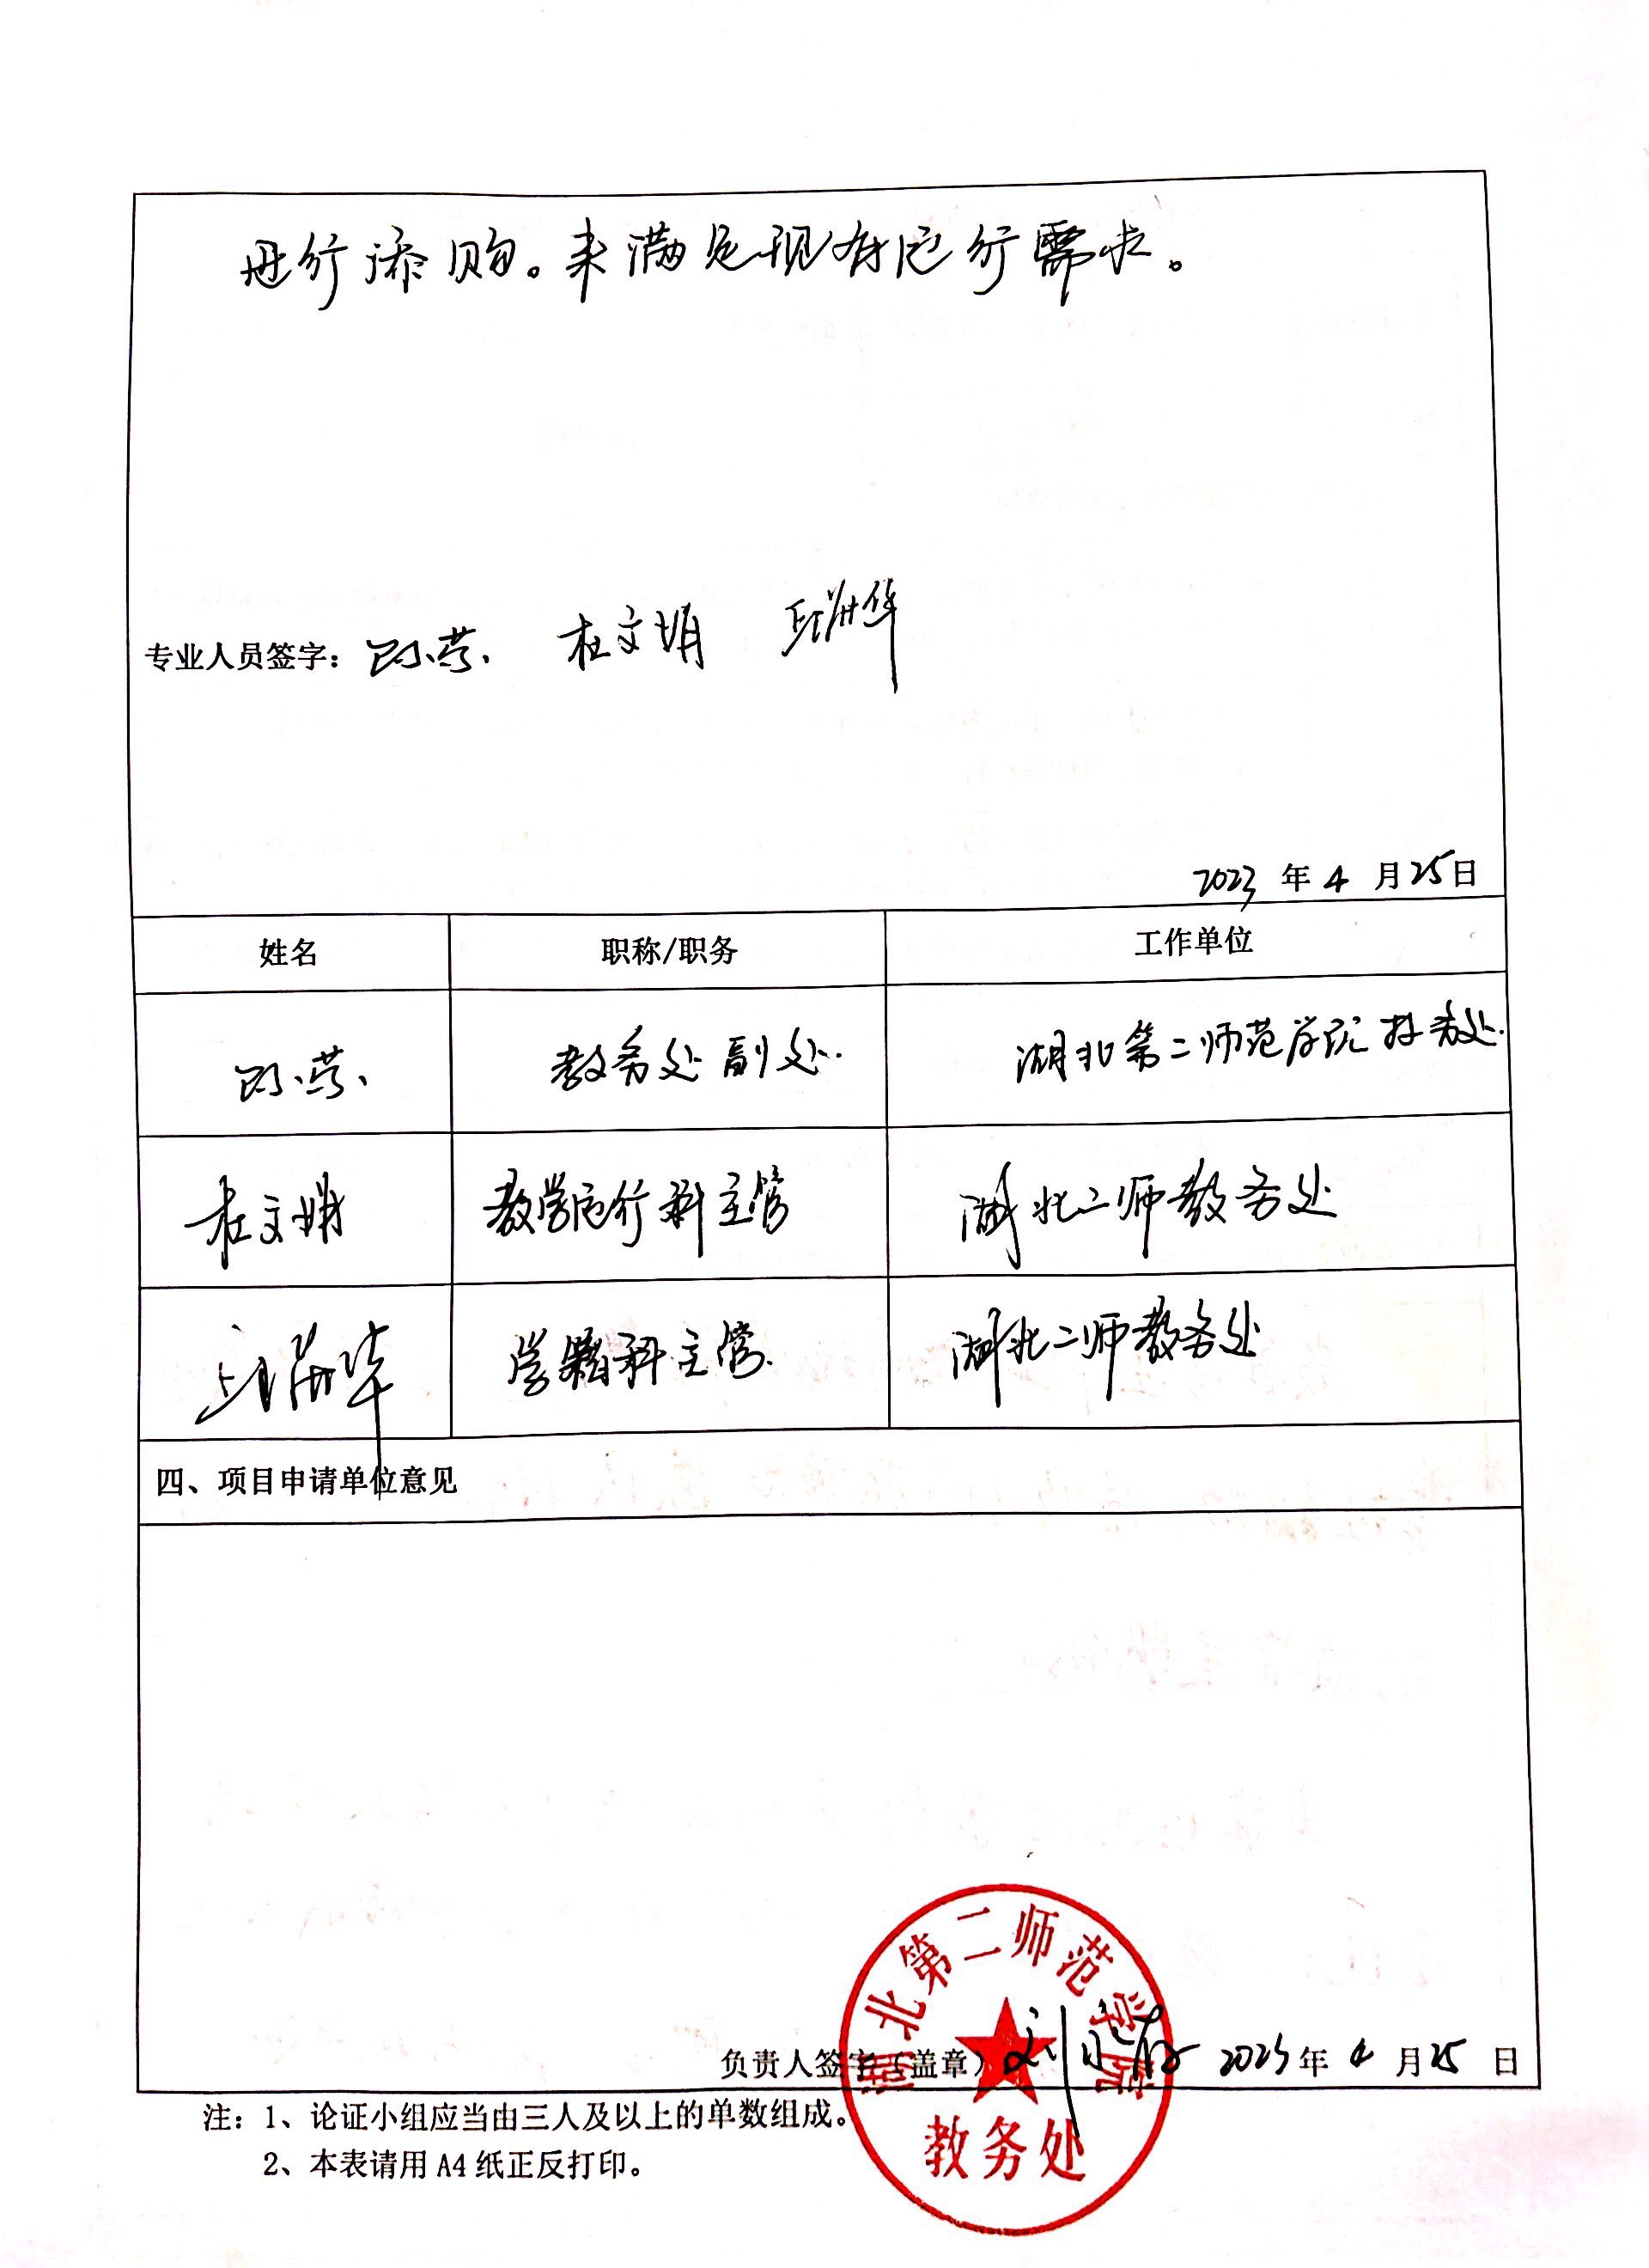 进行添购。来满足现有运行需求。
专业人员签字： 杜文娟
2023 年 4 月 25 日
姓名 职称/职务 工作单位
教务处副处. 湖北第二师范学院教务处.
杜文娟 教学运行科主管 湖北二师教务处
学籍科主管. 湖北二师教务处
四、项目申请单位意见
湖北第二师范学院
负责人签字（盖章） 2023 年 4 月 25 日
教务处
注：1、论证小组应当由三人及以上的单数组成。
2、本表请用 A4 纸正反打印。